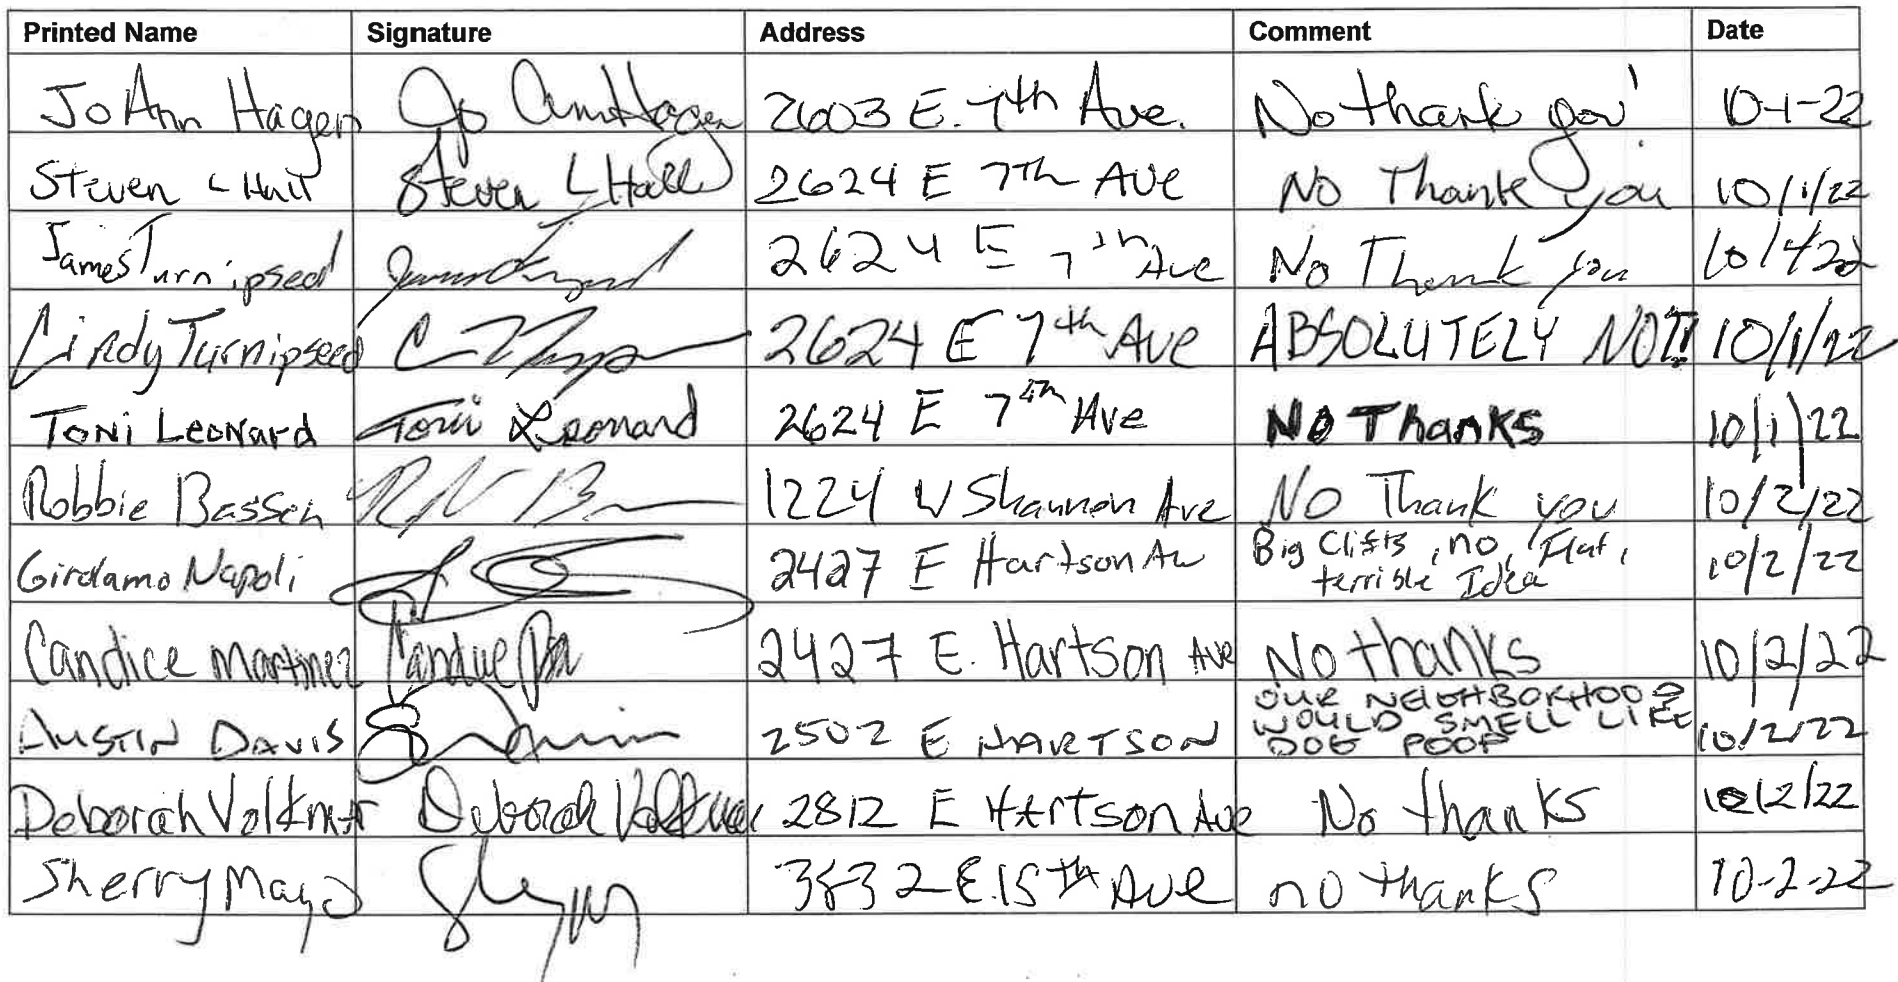 Printed Name Signature Address Comment Date
JoAnn Hagen Jo Ann Hagen 2603 E. 7th Ave. No thank you! 10-1-22
Steven L Hall Steven L Hall 2624 E 7th Ave No Thank you 10/1/22
James Turnipseed 2624 E 7th Ave No Thank you
Cindy Turnipseed 2624 E 7th Ave ABSOLUTELY NOT! 10/1/22
Toni Leonard Toni Leonard 2624 E 7th Ave No Thanks 10/1/22
Robbie Bassen 1224 W Shannon Ave No Thank you 10/2/22
Girdamo Napoli 2427 E Hartson Av Big Cliffs, no, Flat, 10/2/22
terrible Idea
Candice Martinez Candice 2427 E. Hartson Ave No thanks 10/2/22
Austin Davis 2502 E HARTSON OUR NEIGHBORHOOD 10/2/22
WOULD SMELL LIKE
DOG POOP
Deborah Volkmar Deborah Volkmar 2812 E Hartson Ave No thanks 10/2/22
Sherry Mayo E. 15th Ave no thanks 10-2-22